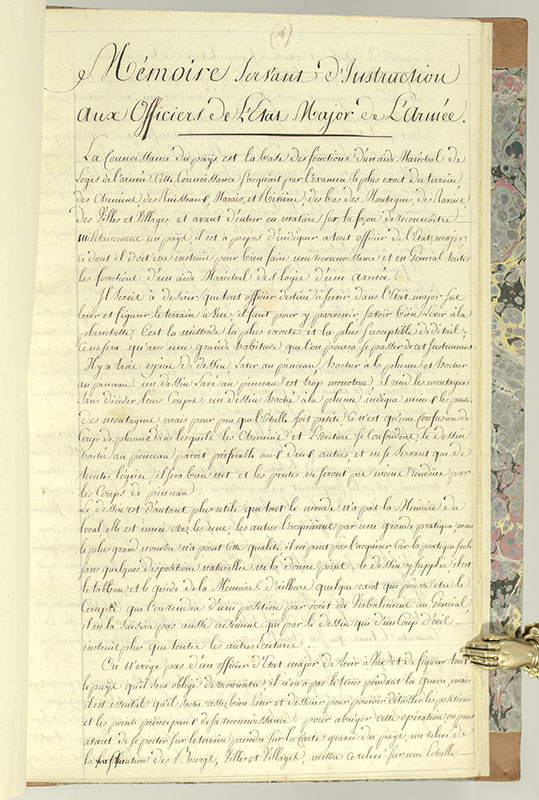 (1)
Mémoire Servant d'Instruction
aux Officiers de L'Etat Major de L'Armée.
La Connoissance du pays est la base des fonctions d'un aide Maréchal de
Logis de l'armée. Cette Connoissance s'acquiert par l'examen le plus exact du terrein,
des Chemins, des Ruisseaux, Marais, et Rivières, des bas des Montagnes, des Ravins
des Villes et Villages et avant d'entrer en matière sur la façon de reconnoitre
militairement un pays, il est à propos d'indiquer a tout officier de l'Etat major
ce dont il doit etre instruit pour bien faire une reconnoissance et en Général toutes
les fonctions d'un aide Maréchal des Logis d'une armée.
Il seroit à desirer que tout officier destiné à servir dans l'Etat major sut
lever et figurer le terrain à vue; il faut pour y parvenir, savoir bien lever à la
planchette C'est la méthode la plus exacte et la plus susceptible de détail;
ce ne sera qu'avec une grande habitude que l'on pourra se passer de cet Instrument
Il y a trois espèces de dessin, Laver au pinceau, hacher à la plume et hacher
au pinceau. un dessin Lavé au pinceau est trop monotone, il rend les montagnes
sans décider leurs Coupes; un dessin haché à la plume indique mieux les pentes
des montagnes, mais pour peu que l'échelle soit petite Ce n'est qu'une Confusion de
Coup de plumes dans lesquels les Chemins et l'Ecriture se Confondent, le dessin
haché au pinceau paroit préférable aux deux autres et en se servant que de
teintes légères, il sera bien net et les pentes ne seront pas moins rendues par
les Coups de pinceau
Le dessin est d'autant plus utile que tout le monde n'a pas la Mémoire du
local elle est innée chez les uns, les autres l'acquièrent par une grande pratique, mais
le plus grand nombre n'a point Cette qualité, il ne peut pas l'acquérir Car la pratique seule,
sans quelques dispositions naturelles ne la donne point, le dessin y supplée, il est
le tableau et le Guide de la Mémoire. d'ailleurs quelque exact que puisse etre le
Compte que l'on rendra d'une position par écrit ou Verbalement au Général,
il ne la saisira pas aussi aisément que par le dessin qui d'un Coup d'oeil
instruit plus que toutes les autres lectures.
On n'exige pas d'un officier d'Etat major de lever à Vue et de figurer tout
le pays qu'il sera obligé de reconnoitre, il n'en a pas le tems pendant la Guerre, mais
il est essentiel qu'il sache assez bien lever et dessiner pour pouvoir détailler les positions
et les points principaux de sa reconnoissance; pour abréger cette opération on peut
avant de se porter sur le terrain prendre sur la Carte gravée du pays, un relevé de
la position des Bourgs, Villes et Villages, mettre ce relevé sur une échelle